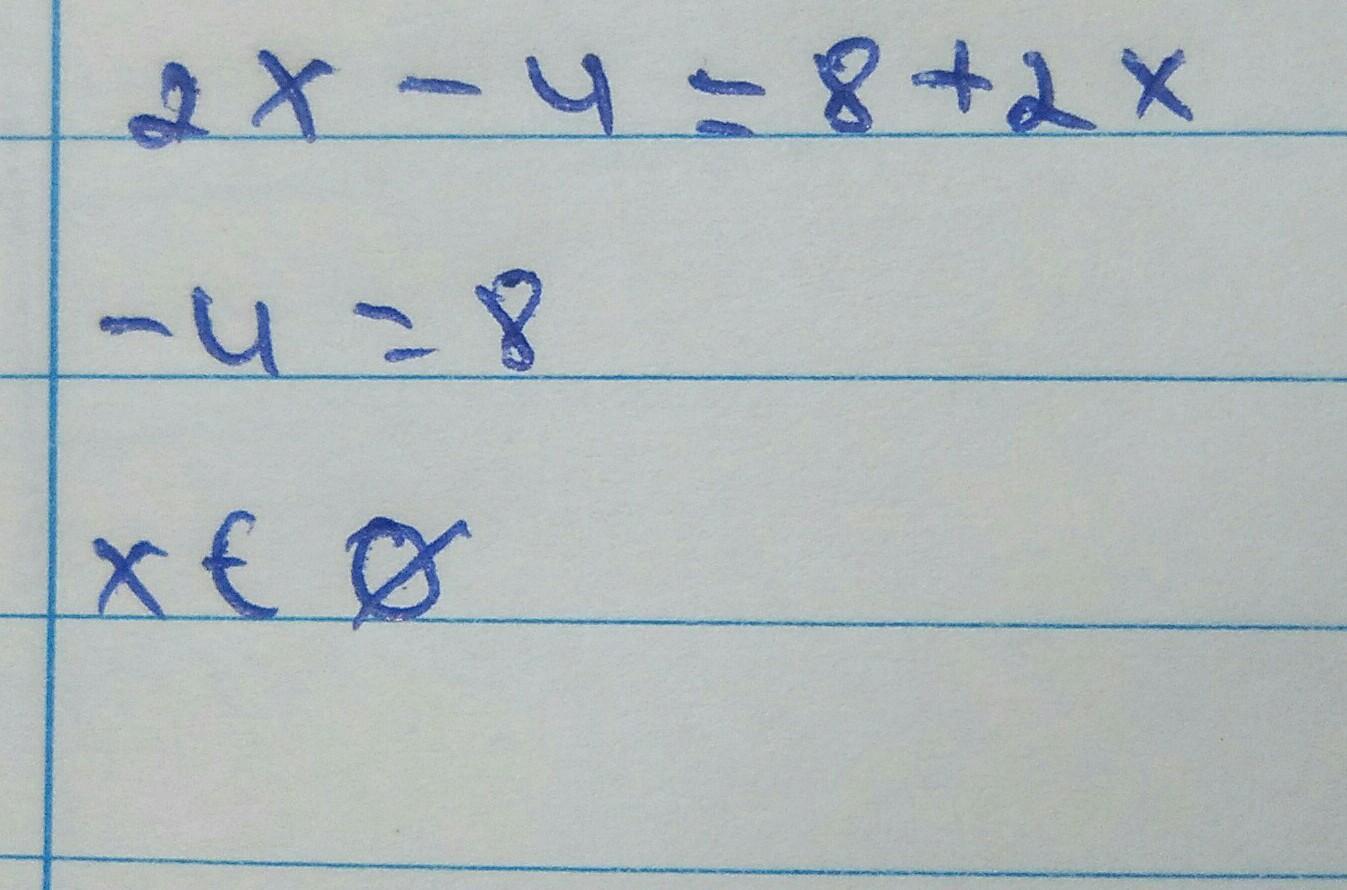 2x - 4 = 8 + 2x
-4 = 8
x € Ø